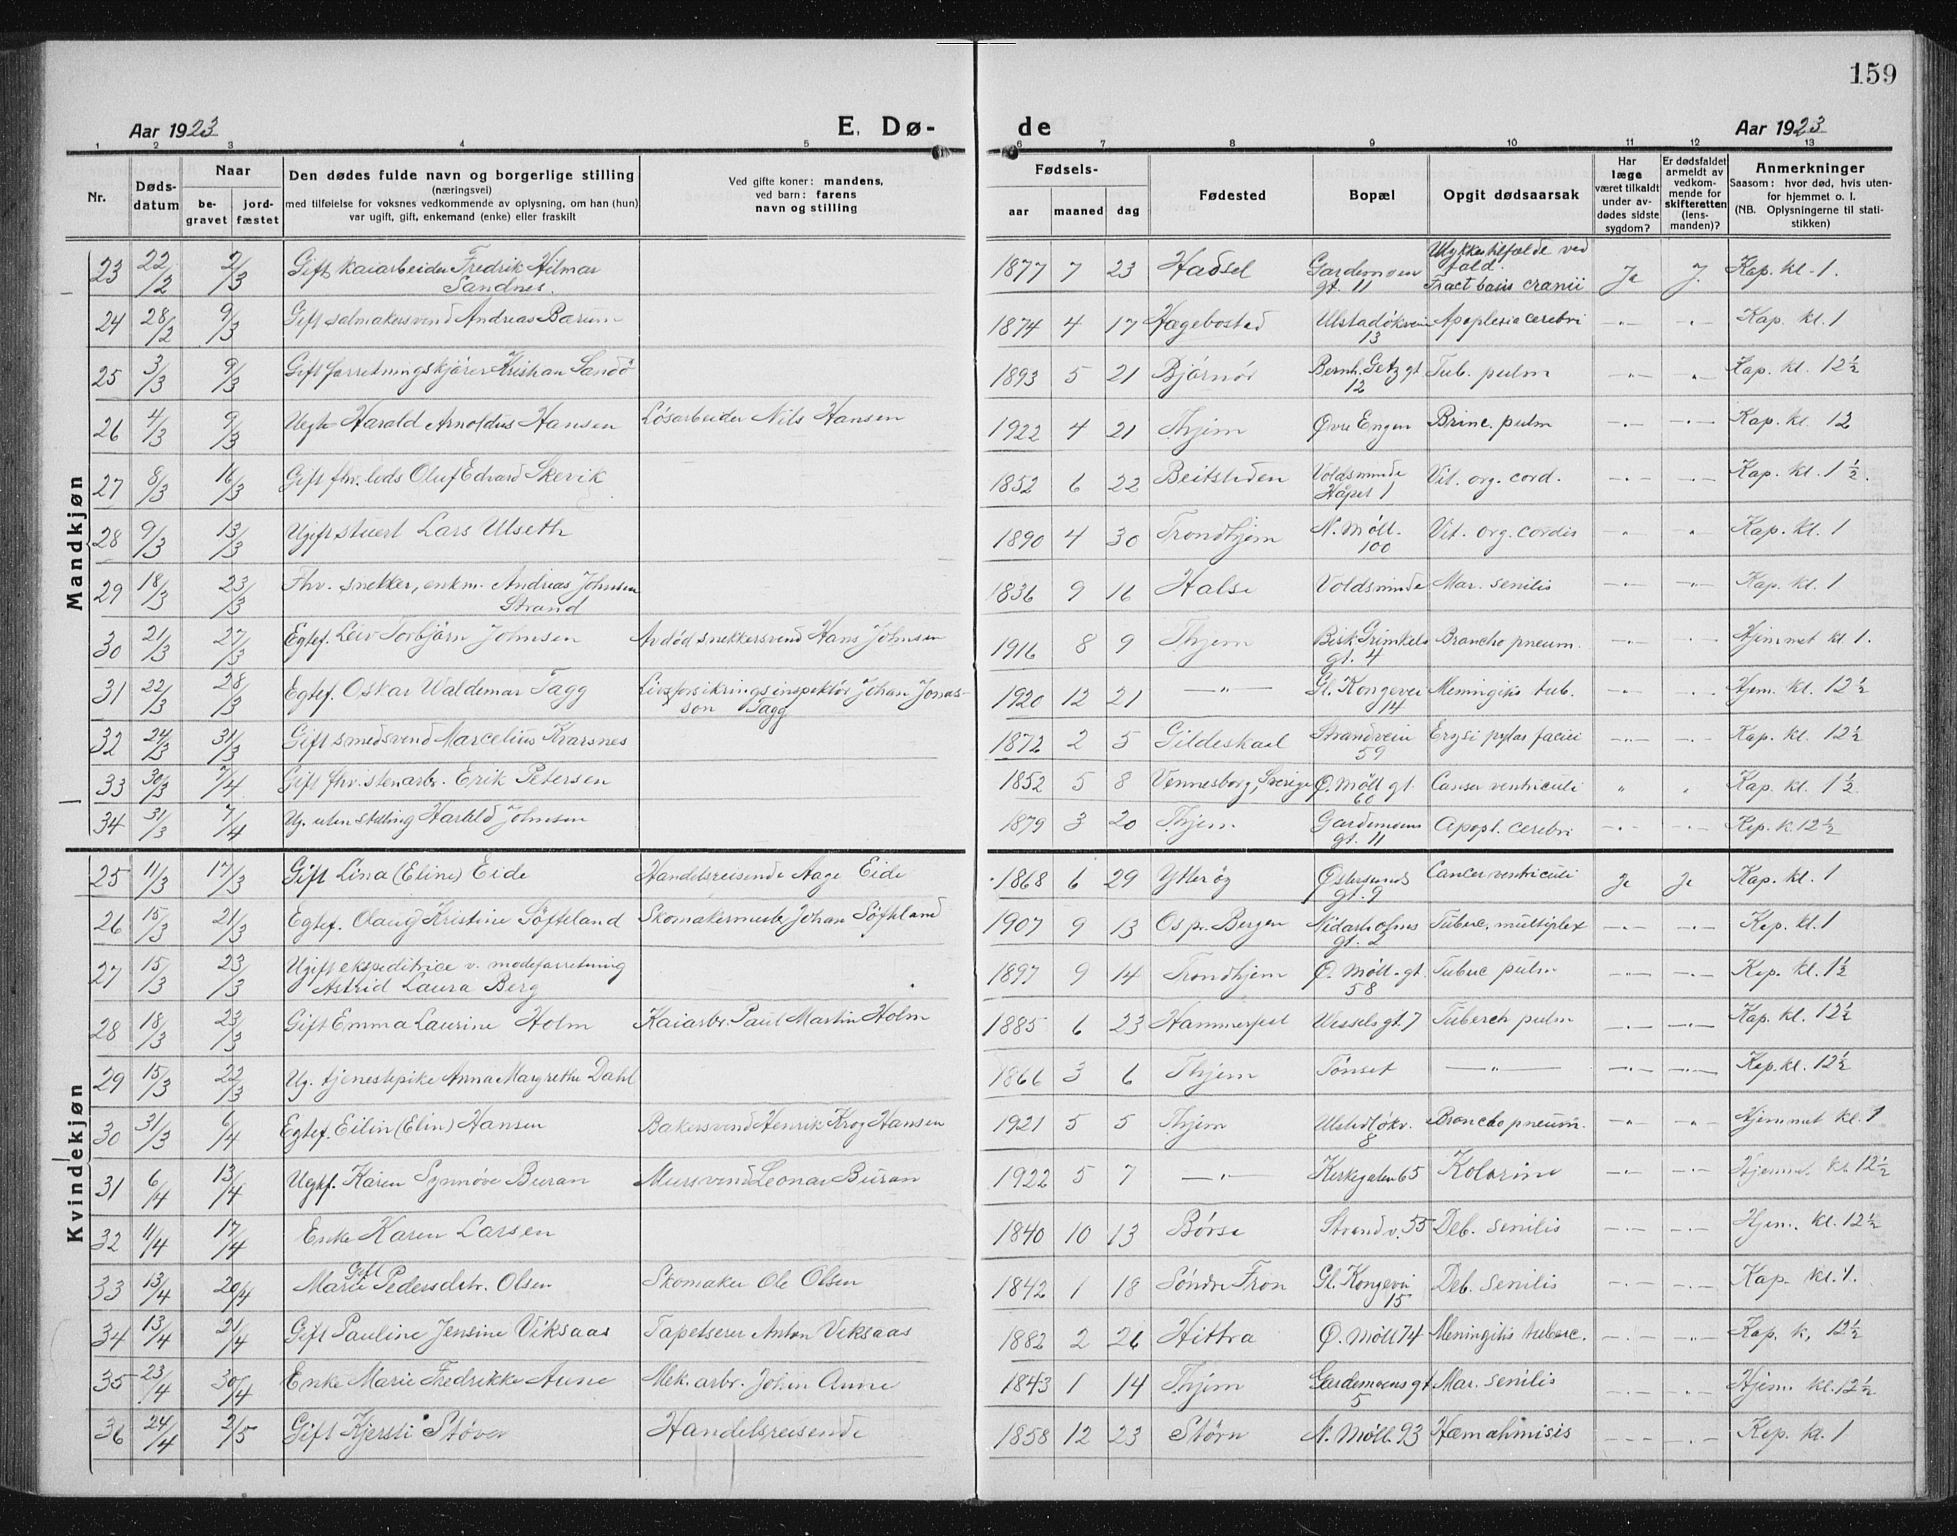 159
Aar 1923
E. Dø-
de
Aar 1923
1 2 3 4 5 6 7 8 9 10 11 12 13
Nr.
Døds-
datum
Naar
be-
gravet
jord-
fæstet
Den dødes fulde navn og borgerlige stilling
(næringsvei)
med tilføielse for voksnes vedkommende av oplysning, om han (hun)
var ugift, gift, enkemand (enke) eller fraskilt
Ved gifte koner: mandens,
ved barn: farens
navn og stilling
Fødsels-
aar maaned dag
Fødested
Bopæl
Opgit dødsaarsak
Har
læge
været tilkaldt
under av-
dødes sidste
sygdom?
Er dødsfaldet
armeldt av
vedkom-
mende for
skifteretten
(lens-
manden)?
Anmerkninger
Saasom: hvor død, hvis uten-
for hjemmet o. l.
(NB. Oplysningerne til stati-
stikken)
Mandkjøn
23 22/2 2/3 Gift kaiarbeider Fredrik Hilmar Sandnes. 1877 7 23 Hadsel Gardemoen gt. 11 Ulykkestilfælde ved fald. Fract basis cranii Ja J. Kap. kl. 1.
24 28/2 9/3 Gift salmakersvend Andreas Bærum 1874 4 17 Hægebostad Ulstadløkvein 13 Apoplesia cerebri -"- -"- Kap. kl. 1
25 3/3 9/3 Gift forretningskjører Kristian Sandø 1893 5 21 Bjørnør Bernh. Getz gt 12 Tub. pulm -"- " Kap. kl. 12 1/2
26 4/3 9/3 Uegte Harald Arnoldus Hansen Løsarbeider Nils Hansen 1922 4 21 Thjem Øvre Engen pulm -"- -"- Kap. kl. 12
27 8/3 16/3 Gift fhv. lods Oluf Edvard Skevik 1852 6 22 Beitstaden Voldsminde Håpet 1 Vit. org. cord. -"- -"- Kap. kl. 1 1/2.
28 9/3 13/3 Ugift stuert Lars Ulseth 1890 4 30 Trondhjem N. Møll. 100 Vit. org. cordis " " Kap. kl. 1
29 18/3 23/3 Fhv. snekker, enkm. Andreas Johnsen Strand 1836 9 16 Halse Voldsminde Mar. senilis -"- -"- Kap. kl. 1
30 21/3 27/3 Egtef. Leiv Torbjørn Johnsen Avdød snekkersvend Hans Johnsen 1916 8 9 Thjem Bisk. Grimkels gt. 4 Broncho pneum. -"- -"- Hjemmet kl. 1.
31 22/3 28/3 Egtef. Oskar Waldemar Tagg Livsforsikringsinspektør Johan Jonas- son Tagg 1920 12 21 -"- Gl. Kongevei 14 Meningitis tub. -"- -"- Hjem. kl. 12 1/2
32 24/3 31/3 Gift smedsvend Marcelius Kvarsnes 1872 2 5 Gildeskaal Strandveien 59 Erysipylas faciei -"- -"- Kap. kl. 12 1/2
33 30/3 7/4 Gift fhv. stenarb. Erik Petersen 1852 5 8 Vennesborg, Sverige Ø. Møll gt. 60 Cancer ventriculi " " Kap. kl. 1 1/2
34 31/3 7/4 Ug. uten stilling Harald Johnsen 1879 3 20 Thjem Gardemoens gt. 11 Apopl. cerebri -"- -"- Kap. k. 12 1/2
Kvindekjøn
25 11/3 17/3 Gift Lina (Eline) Eide Handelsreisende Aage Eide 1868 6 29 Ytterøy Østersunds gt. 9 Cancer ventriculi Ja Ja Kap. kl. 1
26 15/3 21/3 Egtef. Olaug Kristine Søfteland Skomakermester Johan Søfteland 1907 9 13 Os pr. Bergen Nidarholms gt. 2 Tuberc. multiplex -"- -"- Kap. kl. 1
27 15/3 23/3 Ugift ekspeditrice v. modeforretning Astrid Laura Berg 1897 9 14 Trondhjem Ø. Møll. gt. 58 Tuberc pulm -"- -"- Kap. kl. 1 1/2
28 18/3 23/3 Gift Emma Laurine Holm Kaiarbr. Paul Martin Holm 1885 6 23 Hammerfest Wessels gt. 7 Tuberch pulm -"- -"- Kap. kl. 12 1/2
29 15/3 22/3 Ug. tjenestepike Anna Margrethe Dahl 1866 3 6 Thjem Tønset -"- -"- -"- Kap. kl. 12 1/2
30 31/3 6/4 Egtef. Eilin (Elin) Hansen Bakersvend Henrik Krog Hansen 1921 5 5 Thjem Ulstadløkv. 8 Broncho pneum. -"- -"- Hjemmet kl. 1
31 6/4 13/4 Uegtf. Karen Synnøve Buran Mursvend Leonar Buran 1922 5 7 -"- Kirkegaten 65 Kolerine -"- -"- Hjemmet kl. 12 1/2
32 11/4 17/4 Enke Karen Larsen 1840 10 13 Børse Strandv. 55 Deb. senilis -"- -"- Hjem. kl. 12 1/2
33 13/4 20/4 Gift Marie Pedersdtr. Olsen Skomaker Ole Olsen 1842 1 18 Søndre Fron Gl. Kongevei 15 Deb. senilis -"- -"- Kap. kl. 1.
34 13/4 21/4 Gift Pauline Jensine Viksaas Tapetserer Anton Viksaas 1882 2 26 Hittra Ø. Møll 74 Meningitis tuberc. -"- -"- Kap. k. 12 1/2
35 23/4 30/4 Enke Marie Fredrikke Aune Mek. arbr. Johan Aune 1843 1 14 Thjem Gardemoens gt 5 Mar. senilis -"- -"- Hjem. kl. 12 1/2
36 24/4 2/5 Gift Kjersti Støver Handelsreisende 1858 12 23 Støren N. Møll. 93 Hæmatimisis -"- -"- Kap. kl. 1